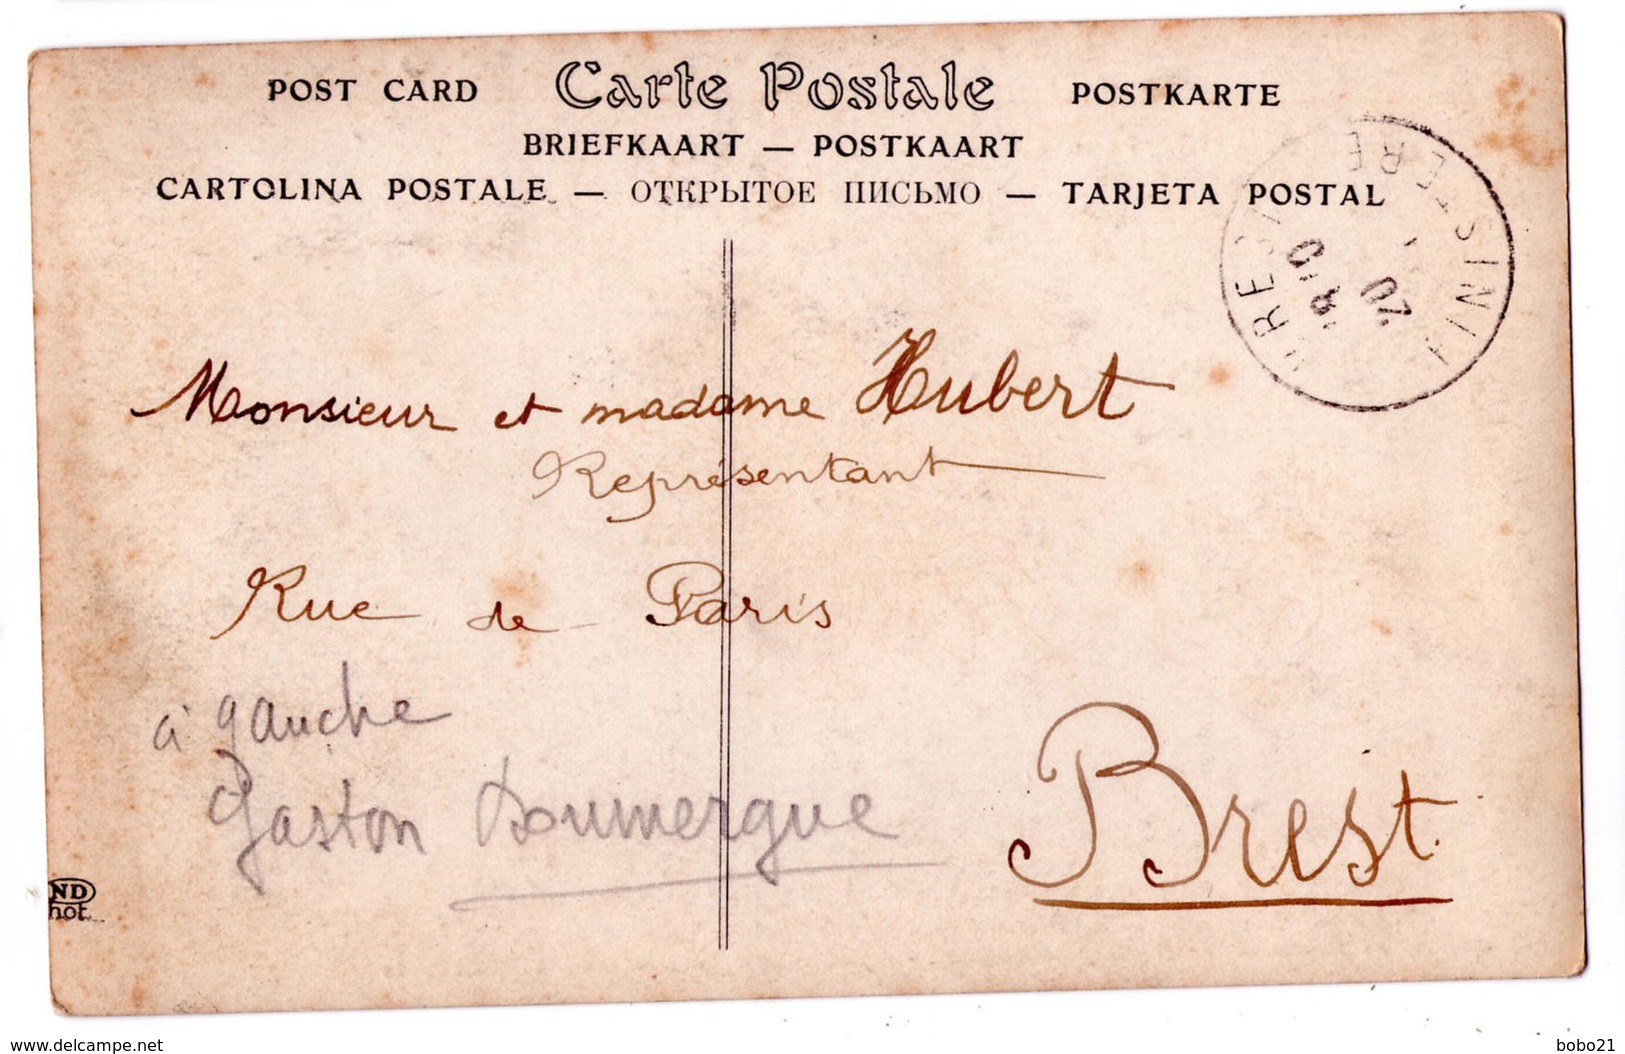 POST CARD Carte Postale POSTKARTE
BRIEFKAART — POSTKAART
CARTOLINA POSTALE — ОТКРЫТОЕ ПИСЬМО — TARJETA POSTAL
BREST
FINISTERE
20
1910
Monsieur et madame Hubert
Représentant
Rue de Paris
à gauche
Gaston Doumergue
Brest.
ND
hot.
delcampe.net
bobo21